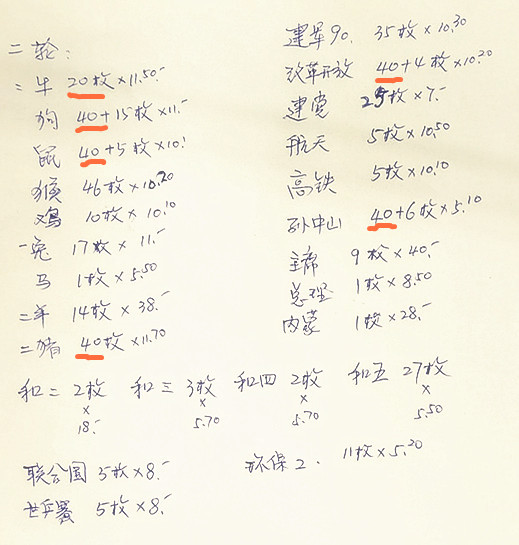 二轮:
二牛 20枚×11.50.-
狗 40+15枚×11.-
鼠 40+5枚×10.-
猴 46枚×10.20
鸡 10枚×10.10
一兔 17枚×11.-
马 1枚×5.50
二羊 14枚×38.-
二猪 40枚×11.70
建军90. 35枚×10.30
改革开放 40+4枚×10.20
建党 25枚×7.-
航天 5枚×10.50
高铁 5枚×10.10
孙中山 40+6枚×5.10
主席 9枚×40.-
总理 1枚×8.50
内蒙 1枚×28.-
和二 2枚×18.- 和三 3枚×5.70 和四 2枚×5.70 和五 27枚×5.50
联合国 5枚×8.-
世乒赛 5枚×8.-
环保2. 11枚×5.20